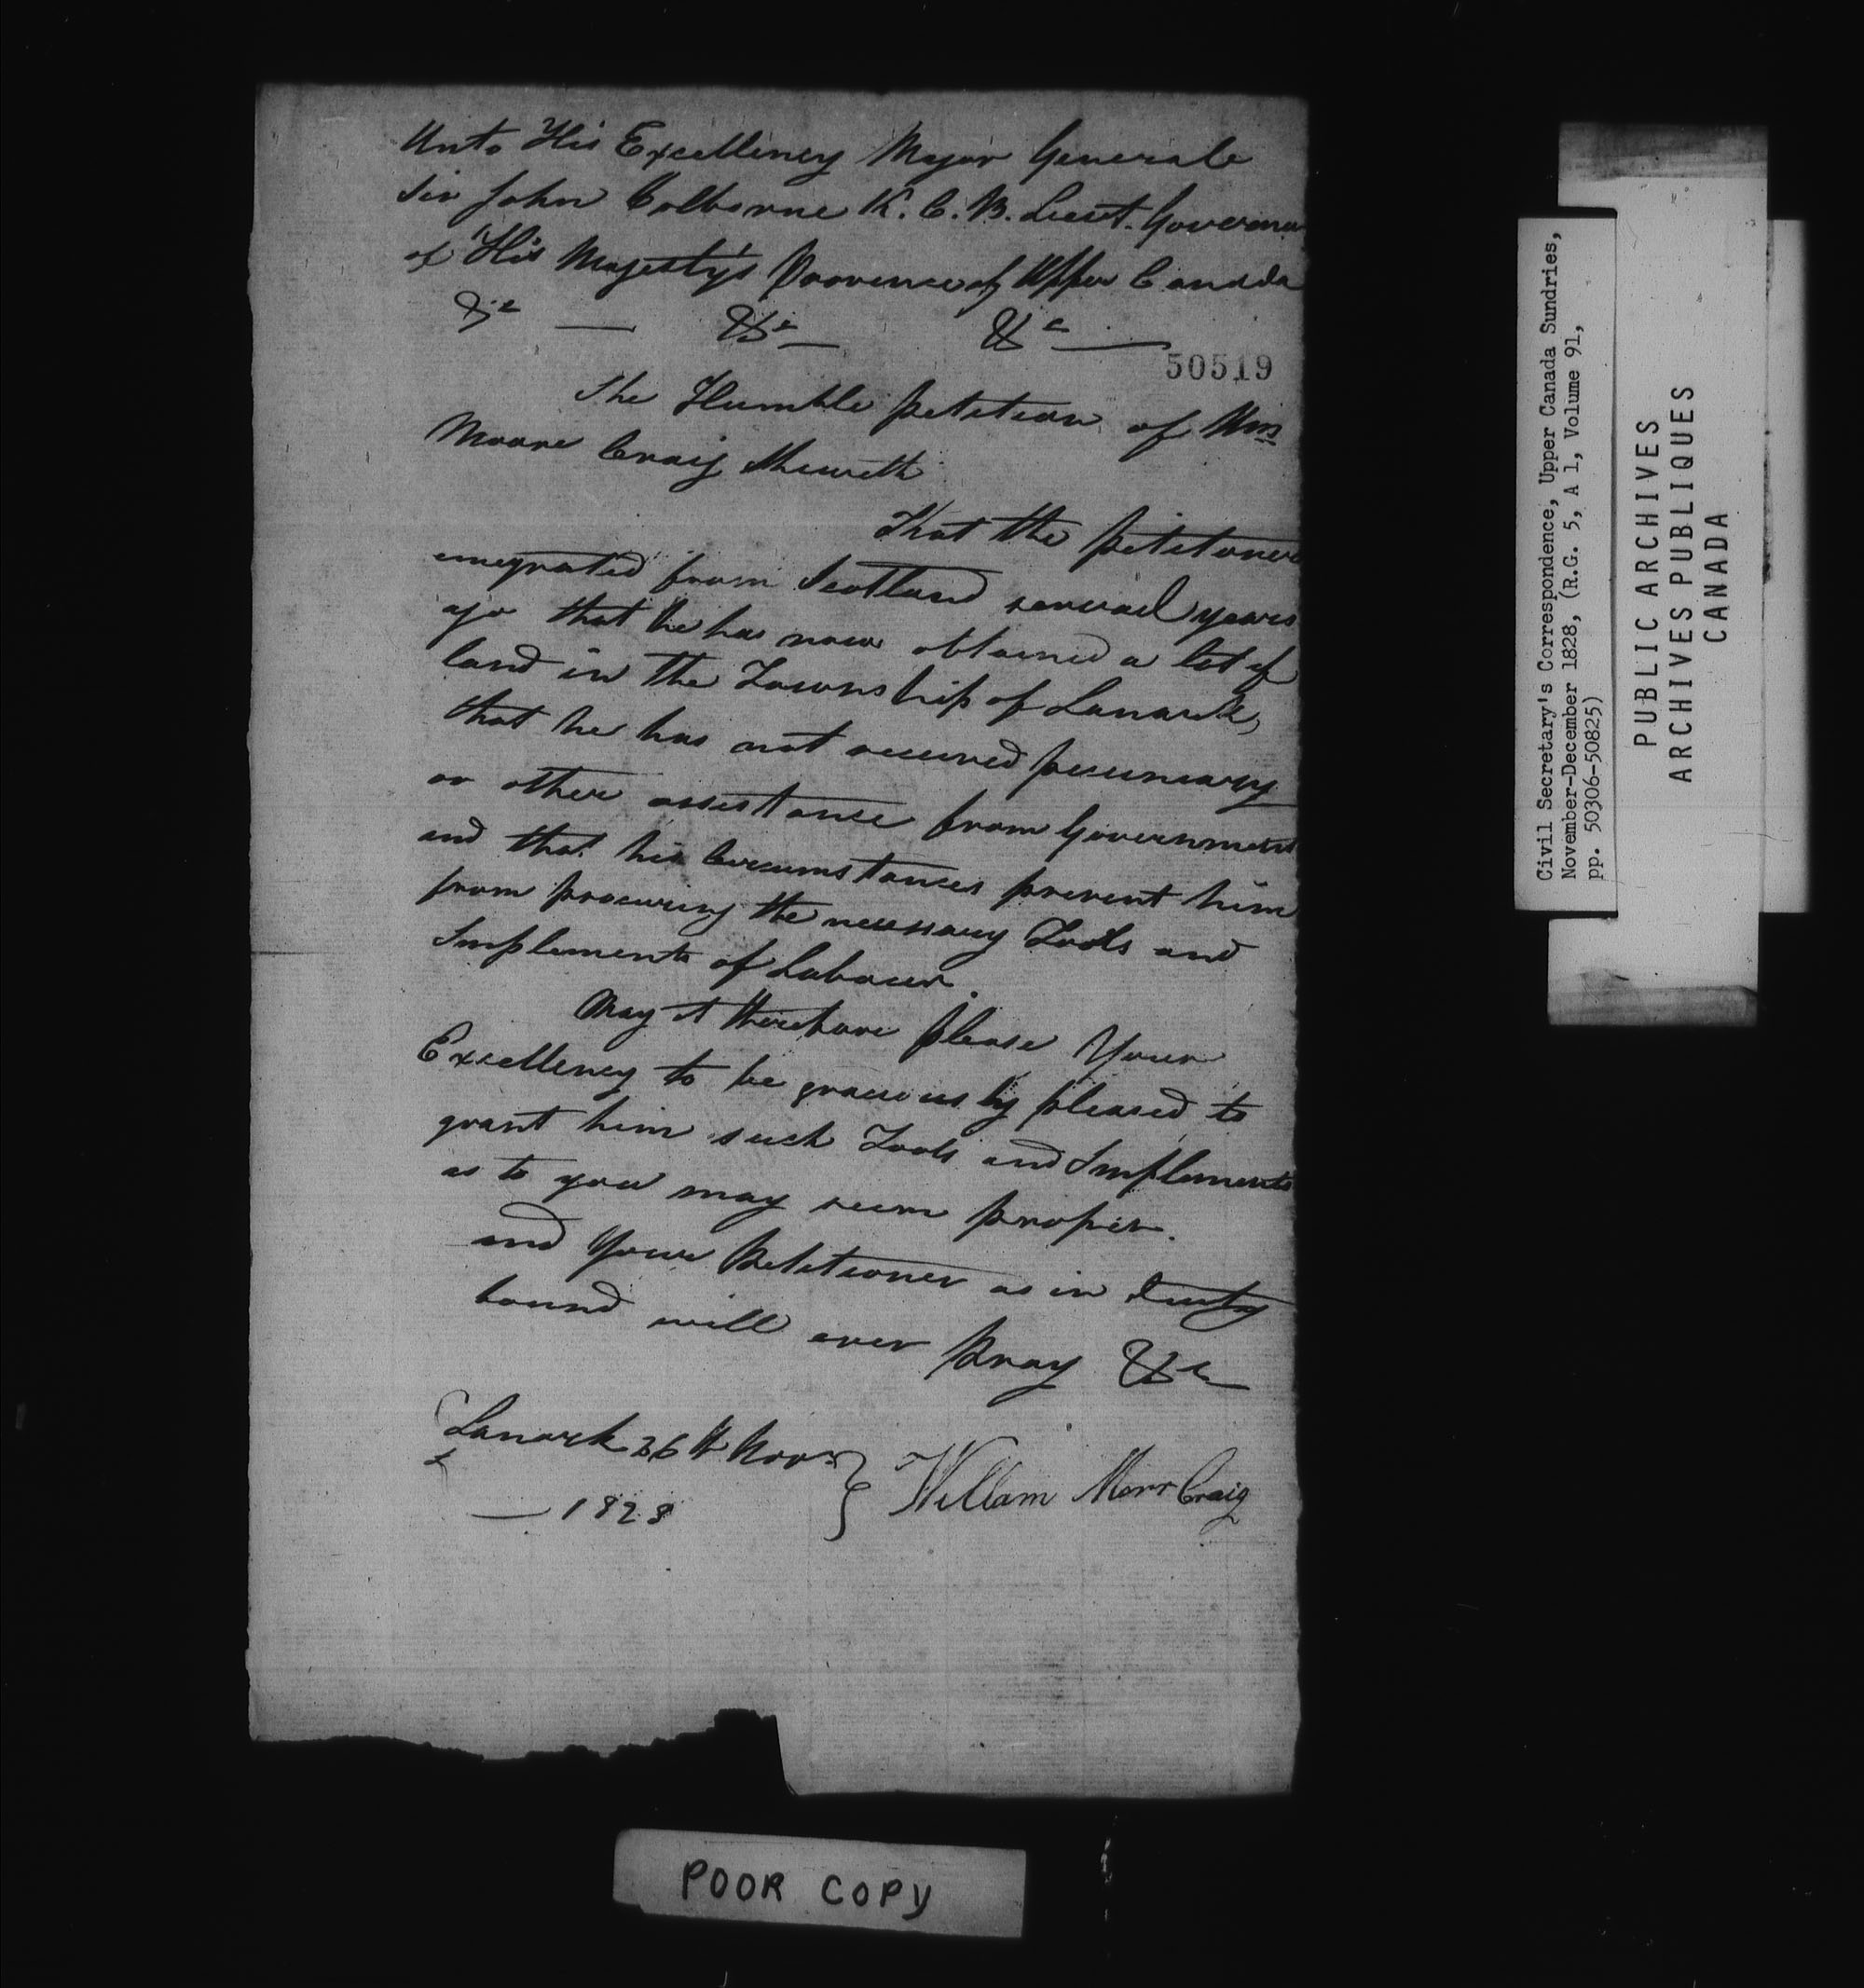 Unto His Excellency Major Generale
Sir John Colborne K. C. B. Lieut. Governor
of His Majesty's Provence of Upper Canada
&c — &c — &c —
50519
The Humble petition of Wm
Moore Craig Sheweth
That the petitioner
emegrated from Scotland several years
ago that he has now obtained a lot of
land in the Township of Lanark,
that he has not received pecuneary
or other assistance from Government
and that his Circumstances prevent him
from procuring the necessary Tools and
Implements of Labour.
May it therefore please Your
Excellency to be graciously pleased to
grant him such Tools and Implements
as to you may seem proper.
and Your Petitioner as in duty
bound will ever pray &c
Lanark 26th Novr
— 1828
Willam Morr Craig
Civil Secretary's Correspondence, Upper Canada Sundries,
November-December 1828, (R.G. 5, A 1, Volume 91,
pp. 50306-50825)
PUBLIC ARCHIVES
ARCHIVES PUBLIQUES
CANADA
POOR COPY